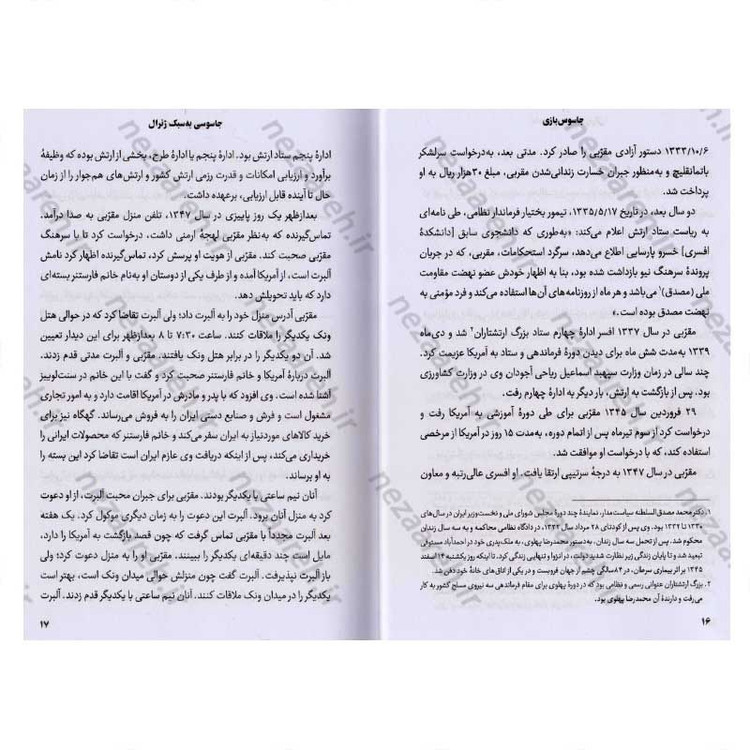 جاسوس‌بازی
۱۳۳۳/۱۰/۶ دستور آزادی مقرّبی را صادر کرد. مدتی بعد، به‌درخواست سرلشکر
باتمانقلیچ و به‌منظور جبران خسارت زندانی‌شدن مقربی، مبلغ ۳۰هزار ریال به او
پرداخت شد.
دو سال بعد، در تاریخ ۱۳۳۵/۵/۱۷، تیمور بختیار فرماندار نظامی، طی نامه‌ای
به ریاست ستاد ارتش اعلام می‌کند: «به‌طوری که دانشجوی سابق [دانشکدهٔ
افسری] خسرو پارسایی اطلاع می‌دهد، سرگرد استحکامات، مقربی، که در جریان
پروندهٔ سرهنگ نیو بازداشت شده بود، بنا به اظهار خودش عضو نهضت مقاومت
ملی (مصدق)۱ می‌باشد و هر ماه از روزنامه‌های آن‌ها استفاده می‌کند و فرد مؤمنی به
نهضت مصدق بوده است.»
مقرّبی در سال ۱۳۳۷ افسر ادارهٔ چهارم ستاد بزرگ ارتشتاران۲ شد و دی‌ماه
۱۳۳۹ به‌مدت شش ماه برای دیدن دورهٔ فرماندهی و ستاد به آمریکا عزیمت کرد.
چند سالی در زمان وزارت سپهبد اسماعیل ریاحی آجودان وی در وزارت کشاورزی
بود. پس از بازگشت به ارتش، بار دیگر به ادارهٔ چهارم رفت.
۲۹ فروردین سال ۱۳۴۵ مقرّبی برای طی دورهٔ آموزشی به آمریکا رفت و
درخواست کرد از سوم تیرماه پس از اتمام دوره، به‌مدت ۱۵ روز در آمریکا از مرخصی
استفاده کند، که با درخواست او موافقت شد.
مقرّبی در سال ۱۳۴۷ به درجهٔ سرتیپی ارتقا یافت. او افسری عالی‌رتبه و معاون
۱. دکتر محمد مصدق‌السلطنه سیاست‌مدار، نمایندهٔ چند دورهٔ مجلس شورای ملی و نخست‌وزیر ایران در سال‌های
۱۳۳۰ تا ۱۳۳۲ بود. وی پس از کودتای ۲۸ مرداد سال ۱۳۳۲، در دادگاه نظامی محاکمه و به سه سال زندان
محکوم شد. پس از تحمل سه سال زندان، به دستور محمدرضا پهلوی، به ملک‌پدری خود در احمدآباد مستوفی
تبعید شد و تا پایان زندگی زیر نظارت شدید دولت، در انزوا و تنهایی زندگی کرد. تا اینکه روز یکشنبه ۱۴ اسفند
۱۳۴۵ بر اثر بیماری سرطان، در ۸۴سالگی چشم از جهان فروبست و در یکی از اتاق‌های خانهٔ خود دفن شد.
۲. بزرگ ارتشتاران عنوانی رسمی و نظامی بود که در دورهٔ پهلوی برای مقام فرماندهی سه نیروی مسلح کشور به کار
می‌رفت و دارندهٔ آن محمدرضا پهلوی بود.
۱۶
جاسوسی به‌سبک ژنرال
ادارهٔ پنجم ستاد ارتش بود. ادارهٔ پنجم یا ادارهٔ طرح، بخشی از ارتش بوده که وظیفهٔ
برآورد و ارزیابی امکانات و قدرت رزمی ارتش کشور و ارتش‌های هم‌جوار را از زمان
حال تا آینده قابل ارزیابی، برعهده داشت.
بعدازظهر یک روز پاییزی در سال ۱۳۴۷، تلفن منزل مقرّبی به صدا درآمد.
تماس‌گیرنده که به‌نظر مقرّبی لهجهٔ ارمنی داشت، درخواست کرد تا با سرهنگ
مقرّبی صحبت کند. مقرّبی از هویّت او پرسش کرد، تماس‌گیرنده اظهار کرد نامش
آلبرت است، از آمریکا آمده و از طرف یکی از دوستان او به‌نام خانم فارستنر بسته‌ای
دارد که باید تحویلش دهد.
مقرّبی آدرس منزل خود را به‌راحت داد؛ ولی آلبرت تقاضا کرد که در حوالی هتل
ونک یکدیگر را ملاقات کنند. ساعت ۷:۳۰ تا ۸ بعدازظهر برای این دیدار تعیین
شد. آن دو یکدیگر را در برابر هتل ونک یافتند. مقرّبی و آلبرت مدتی قدم زدند.
آلبرت دربارهٔ آمریکا و خانم فارستنر صحبت کرد و گفت با این خانم در سنت‌لوییز
آشنا شده است. وی افزود که با پدر و مادرش در آمریکا اقامت دارد و به امور تجاری
مشغول است و فرش و صنایع دستی ایران را به فروش می‌رساند. گهگاه نیز برای
خرید کالاهای موردنیاز به ایران سفر می‌کند و خانم فارستنر که محصولات ایرانی را
خریداری می‌کند، پس از اینکه دریافت وی عازم ایران است تقاضا کرد این بسته را
به او برساند.
آنان نیم ساعتی با یکدیگر بودند. مقرّبی برای جبران محبت آلبرت، از او دعوت
کرد به منزل آنان برود. آلبرت این دعوت را به زمان دیگری موکول کرد. یک هفته
بعد آلبرت مجدداً با مقرّبی تماس گرفت که چون قصد بازگشت به آمریکا را دارد،
مایل است چند دقیقه‌ای یکدیگر را ببینند. مقرّبی او را به منزل دعوت کرد؛ ولی
باز آلبرت نپذیرفت. آلبرت گفت چون منزلش حوالی میدان ونک است، بهتر است
یکدیگر را در میدان ونک ملاقات کنند. آنان نیم ساعتی با یکدیگر قدم زدند. آلبرت
۱۷
nezaareh.ir